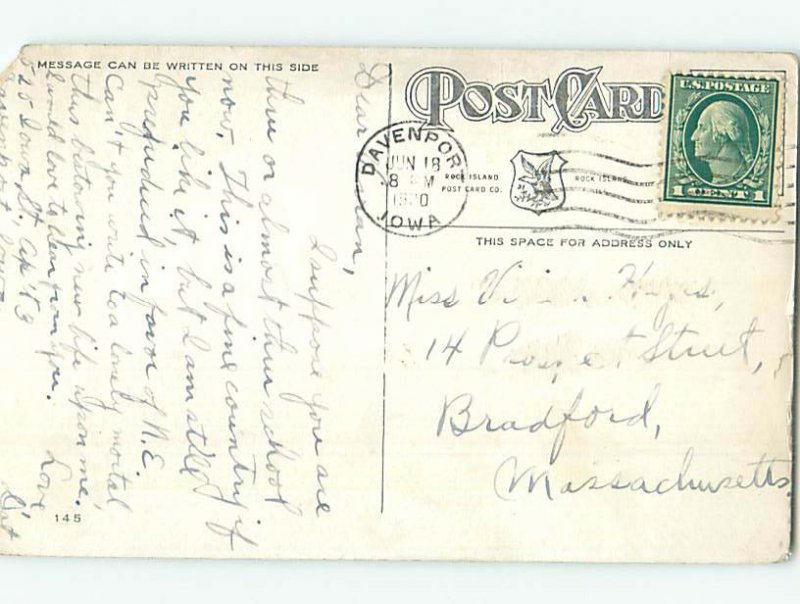 MESSAGE CAN BE WRITTEN ON THIS SIDE
POST CARD
U.S. POSTAGE
1 CENT 1
DAVENPOR
JUN 18
8 M
IOWA
ROCK ISLAND
POST CARD CO.
ROCK ISLAN
THIS SPACE FOR ADDRESS ONLY
Miss
14 Street,
Bradford,
Massachusetts
Dear
I suppose you are
thru or almost thru school
now. This is a fine country if
you like it, but I am still
prejudiced in favor of N.E.
Can't you write to a lonely mortal
this new life upon me.
Would love to hear from you. Love
525 Iowa St. Ap't 3
145